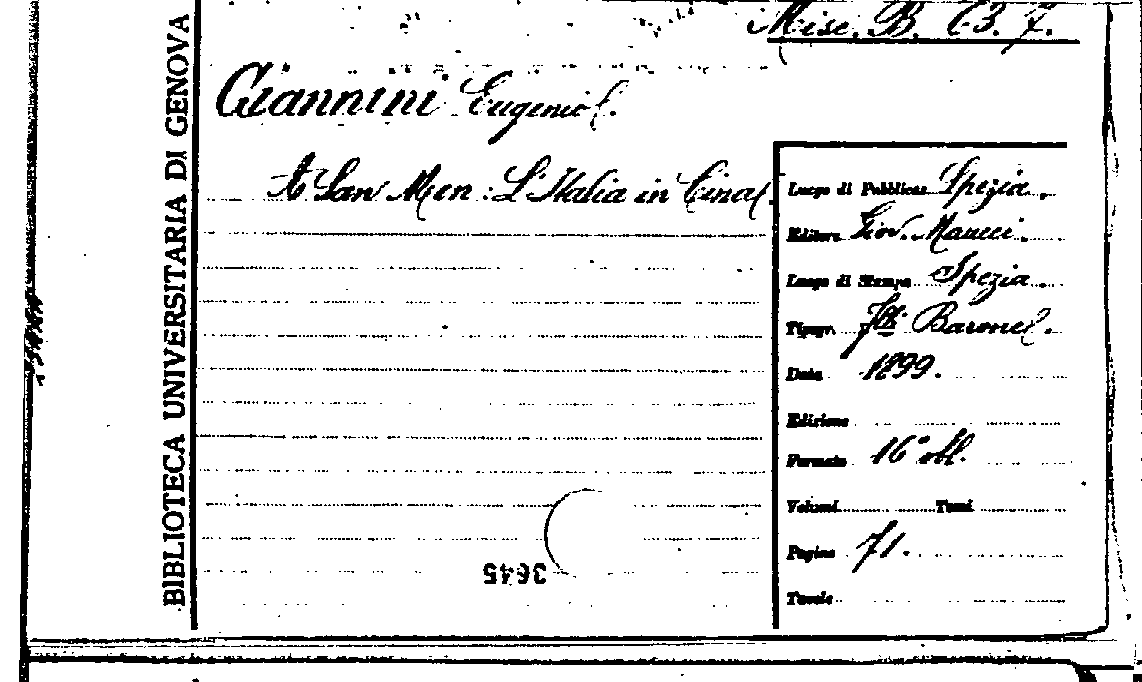 Misc. B. 63. 7.
BIBLIOTECA UNIVERSITARIA DI GENOVA
Giannini Eugenio.
A San Mun: L'Italia in Cina.
Luogo di Pubblicaz. Spezia.
Editore Giov.
Luogo di Stampa Spezia.
Tipogr. Barone.
Data 1899.
Edizione
Formato 16° obl.
Volumi Tomi
Pagine 71.
Tavole
3645